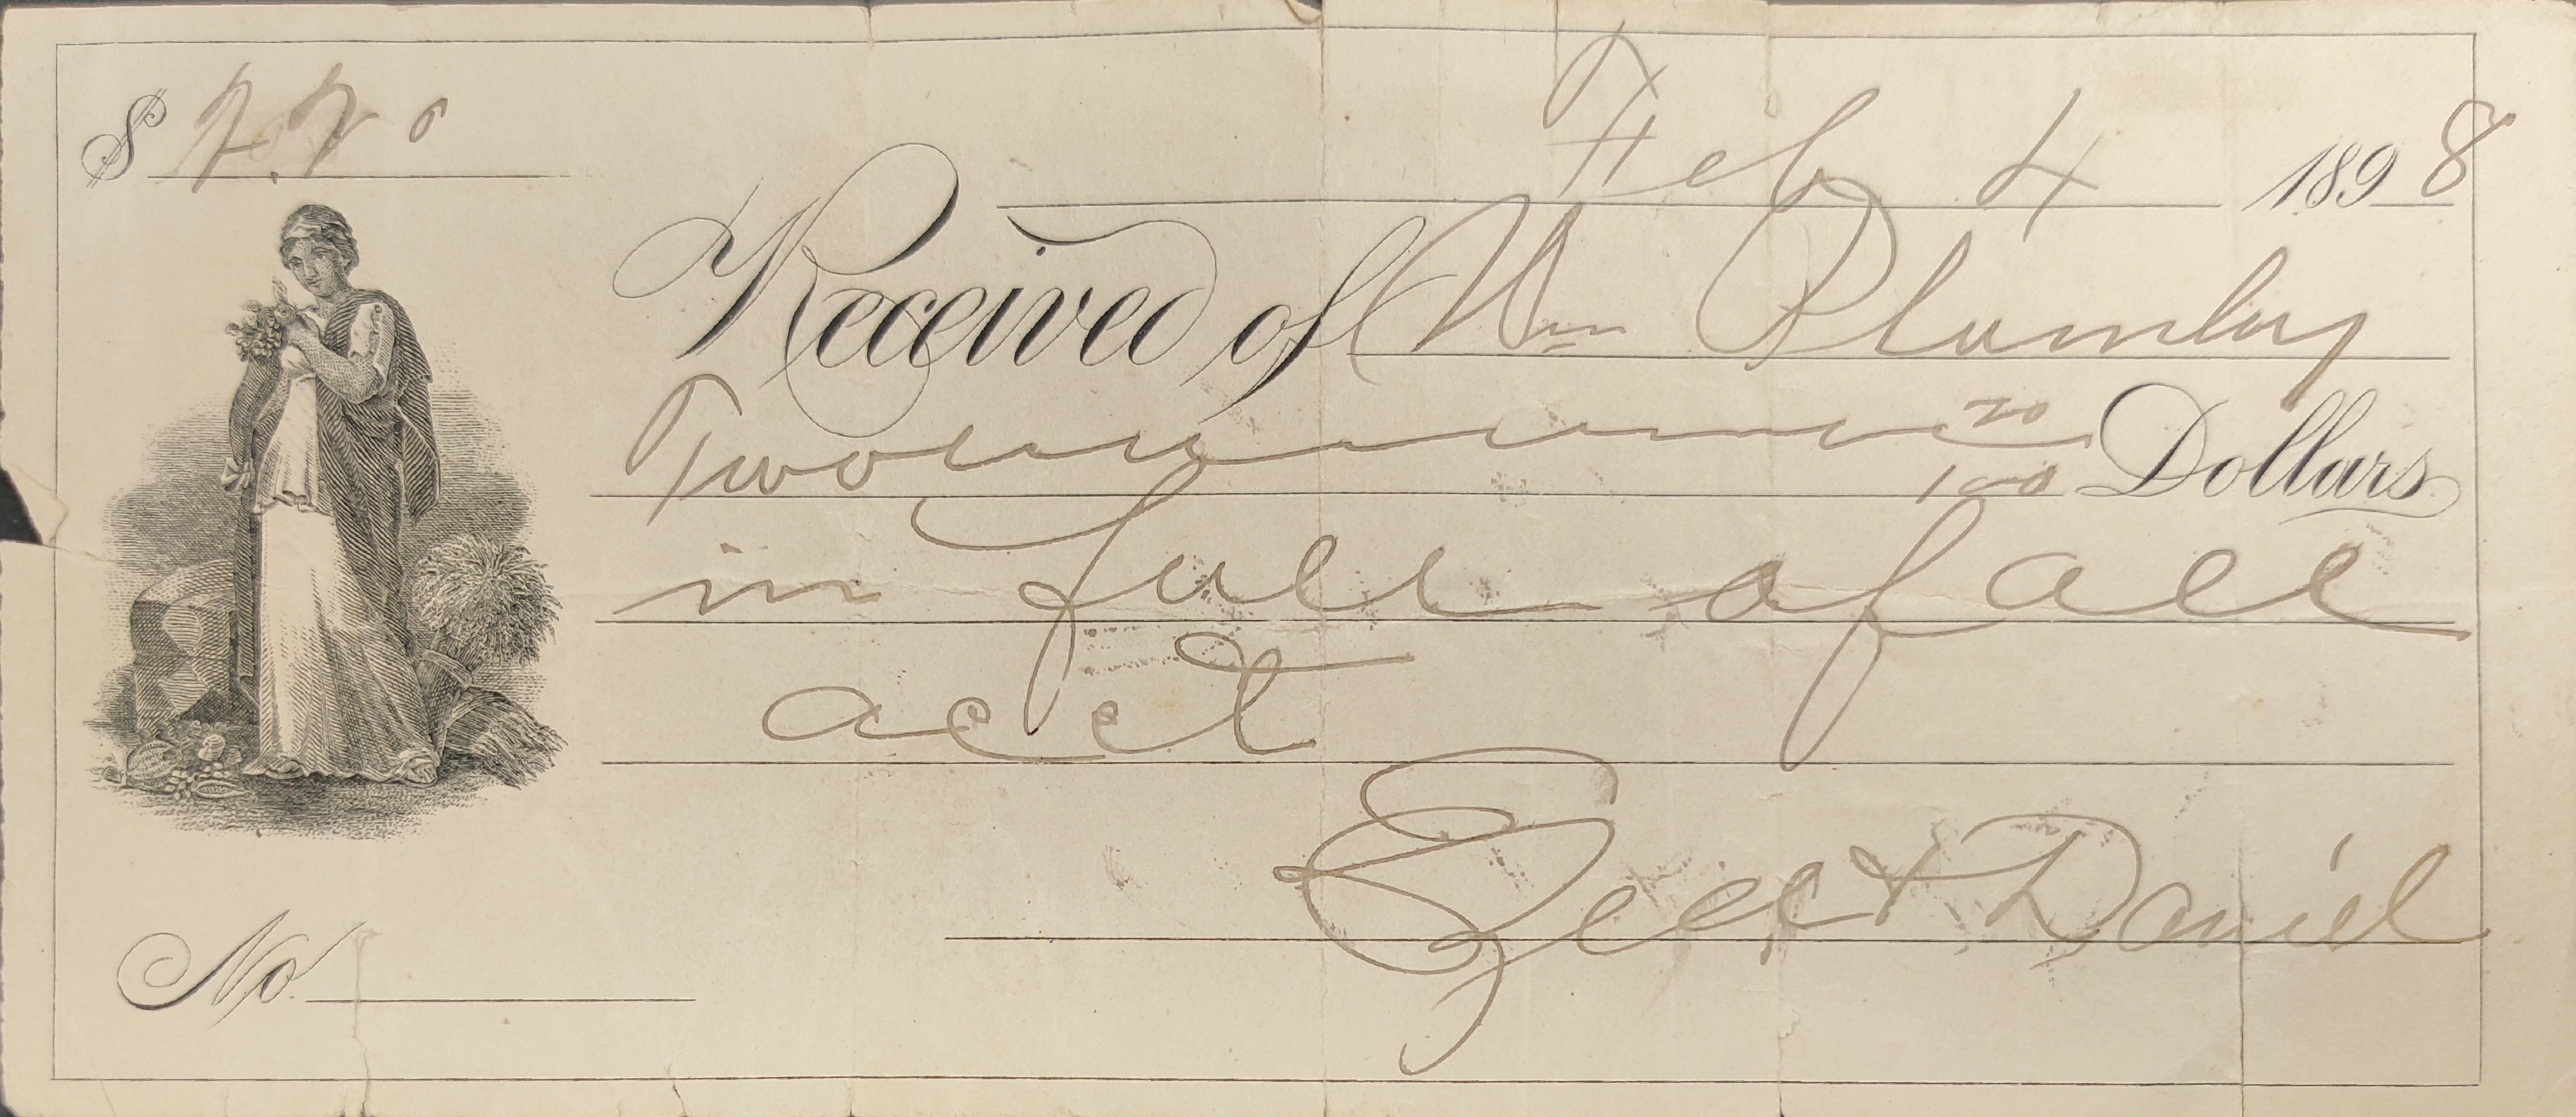 $ 2.20
Feb 4 1898
Received of Wm Plumley
Two 20/100 Dollars
in full of all
acct
& Daniel
No.